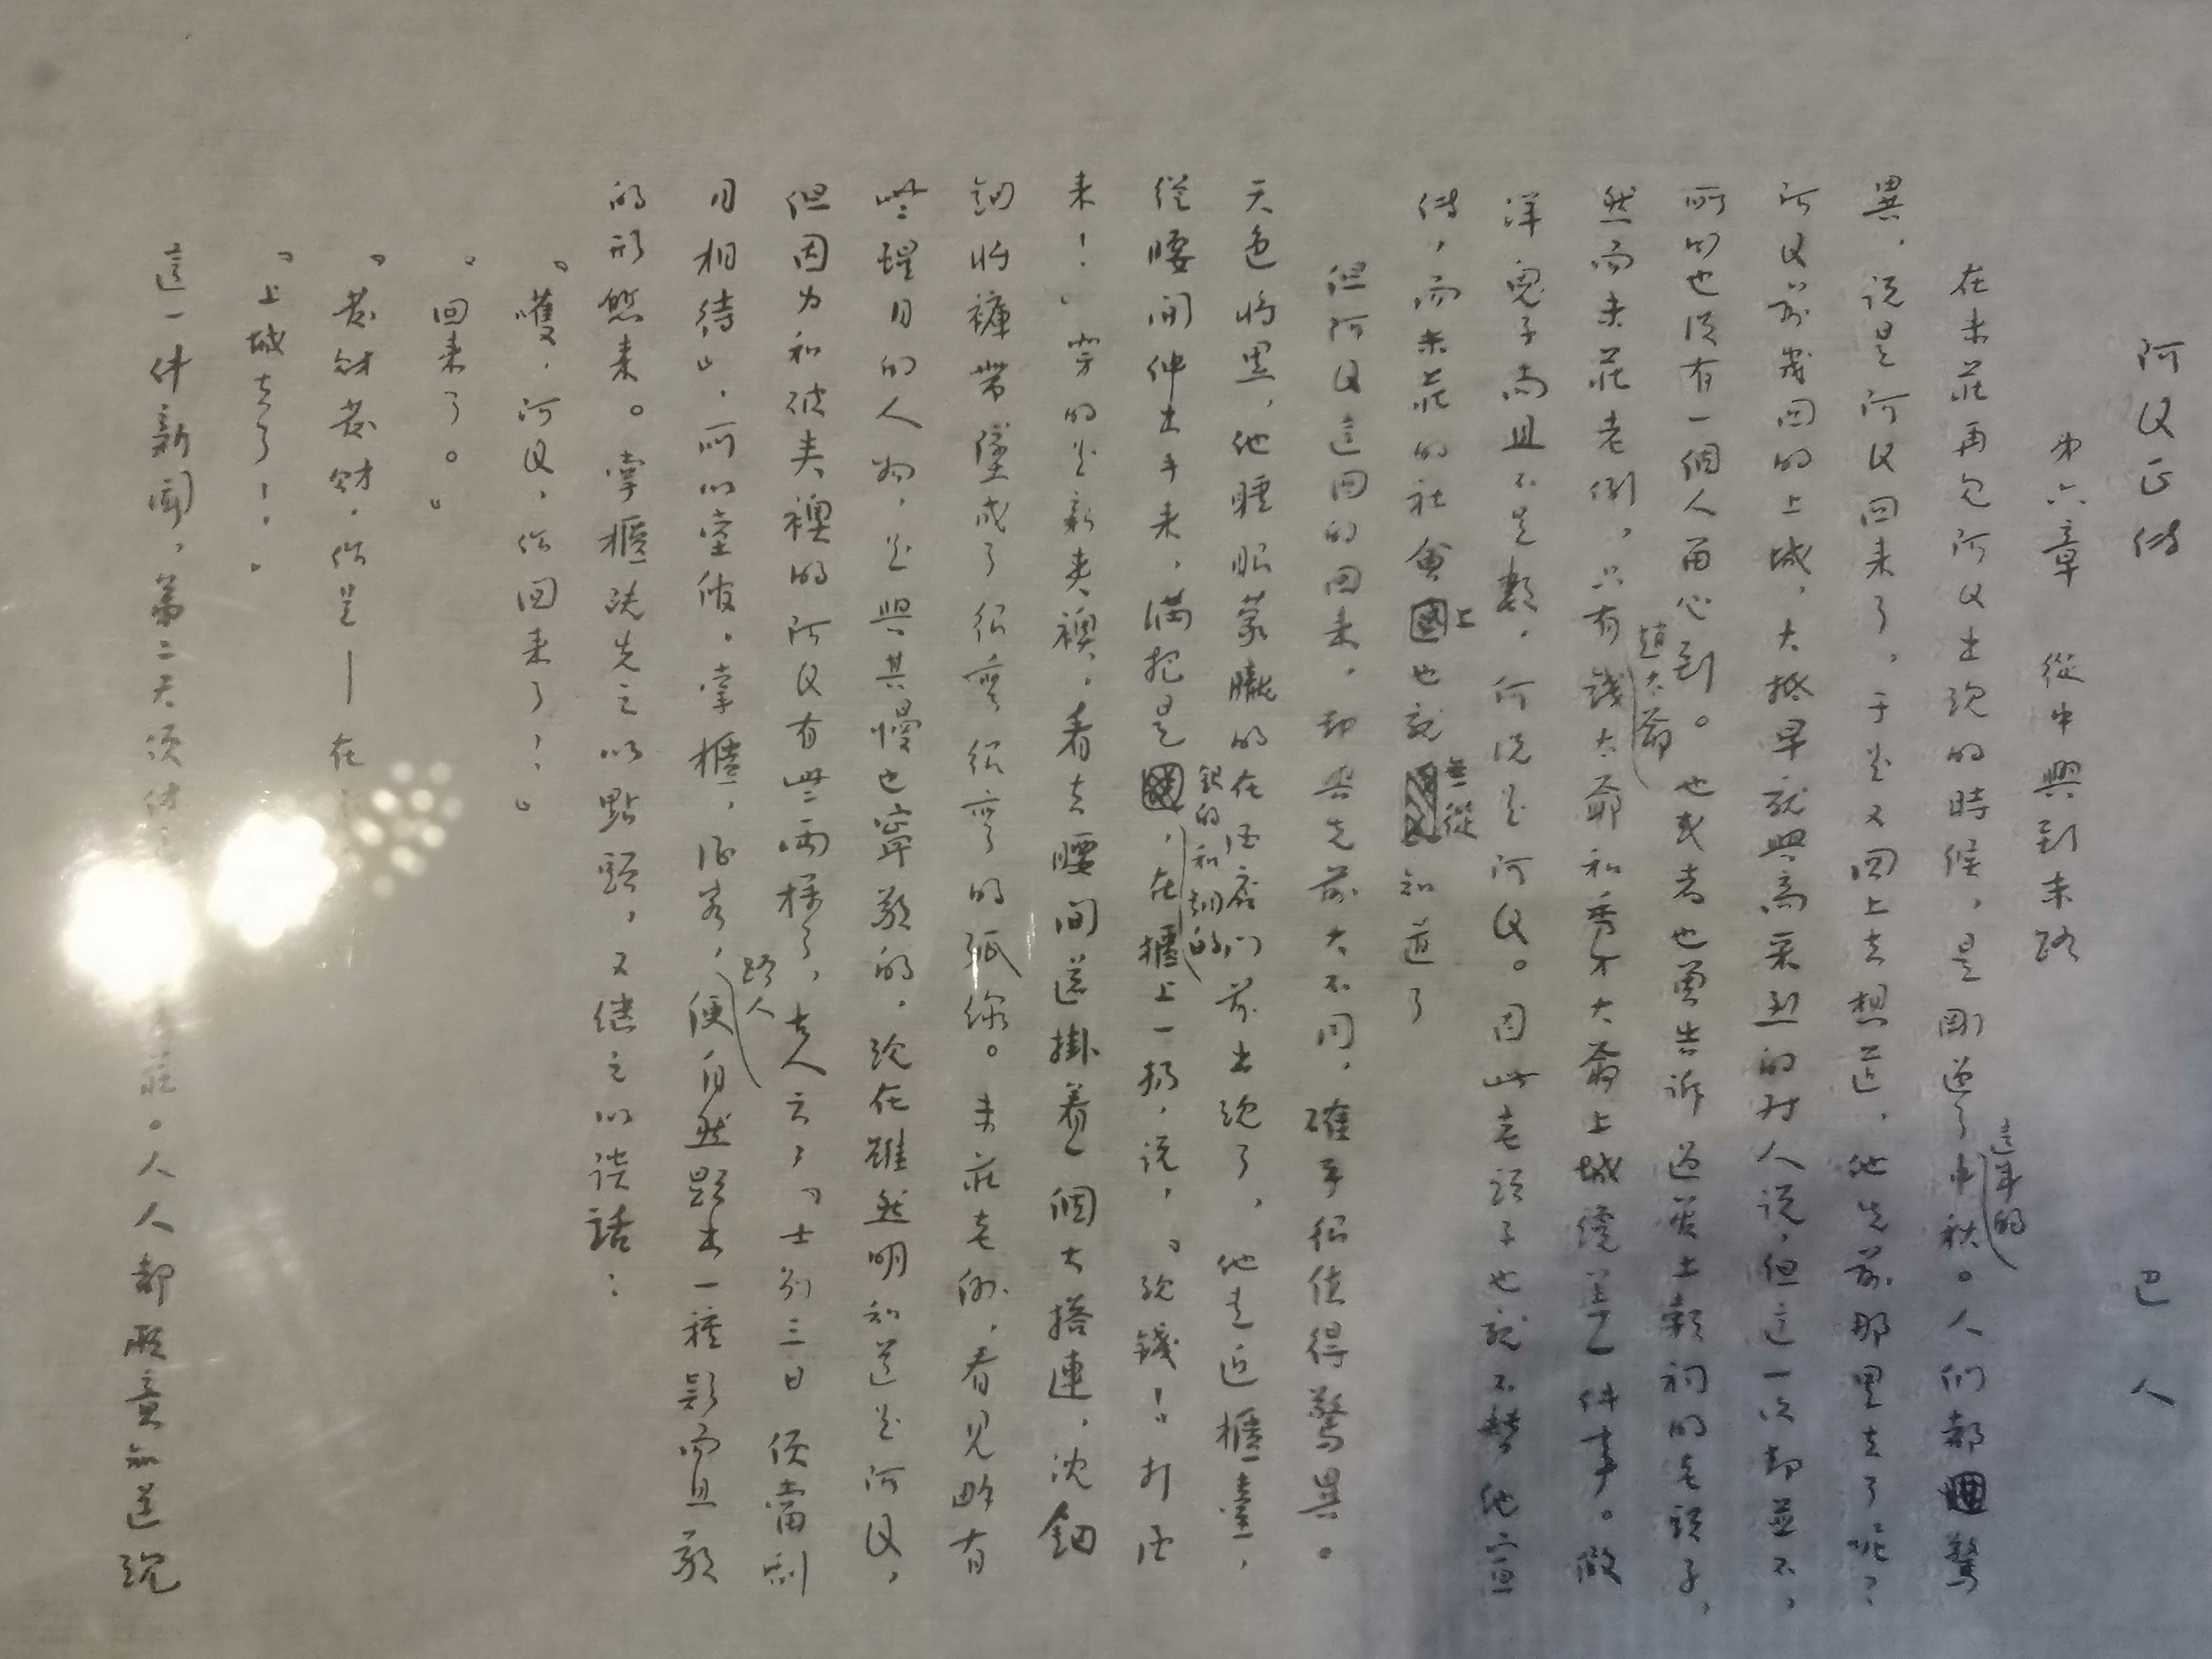 阿Q正傳　巴人
第六章　從中興到末路
在未莊再見阿Q出現的時候，是剛過了這年的中秋。人們都驚
異，說是阿Q回來了，于是又回上去想道，他先前那里去了呢？
阿Q前幾回的上城，大抵早就興高采烈的對人說，但這一次却並不，
所以也沒有一個人留心到。他或者也曾告訴過管土穀祠的老頭子，
然而未莊老例，只有趙大爺錢大爺和秀才大爺上城纔算一件事。假
洋鬼子尚且不足數，何況是阿Q。因此老頭子也就不替他宣
傳，而未莊的社會上也就無從知道了
但阿Q這回的回來，却與先前大不同，確乎很值得驚異。
天色將黑，他睡眼蒙朧的在酒店門前出現了，他走近櫃臺，
從腰間伸出手來，滿把是銀的和銅的，在櫃上一扔，說，「現錢！打酒
來！」穿的是新夾襖，看去腰間還掛着一個大搭連，沈鈿
鈿的將褲帶墜成了很彎很彎的弧線。未莊老例，看見略有
些醒目的人物，是與其慢也寧敬的，現在雖然明知道是阿Q，
但因为和破夾襖的阿Q有些兩樣了，古人云，「士别三日便當刮
目相待」，所以堂倌，掌櫃，酒客，路人，便自然顯出一種疑而且敬
的形態來。掌櫃既先之以點頭，又继之以談話：
「嚄，阿Q，你回来了！」
「回来了。」
「發財發財，你是——在
「上城去了！」
這一件新聞，第二天便傳　　莊。人人都願意知道現